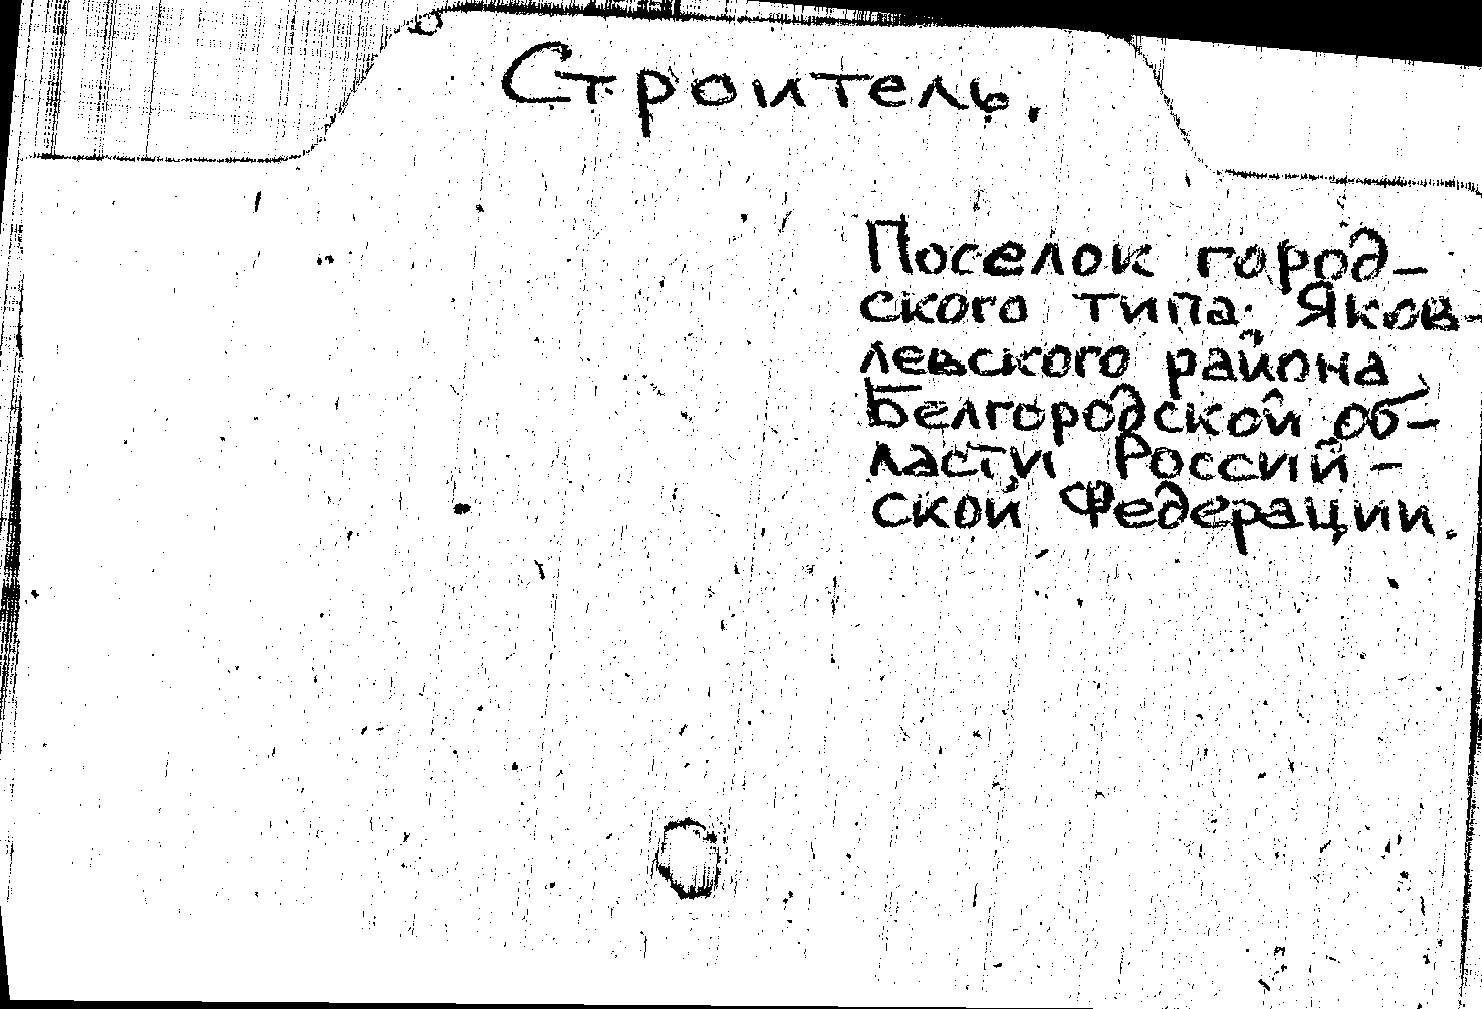 Строитель.
Поселок город-
ского типа Яков-
левского района
Белгородской об-
ласти Россий-
ской Федерации.